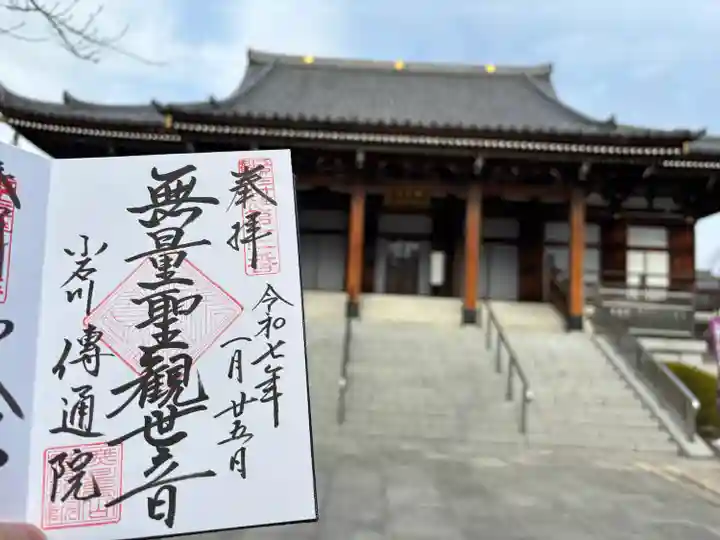 奉拝
令和七年
一月廿五日
無量聖観世音
小石川傳通院